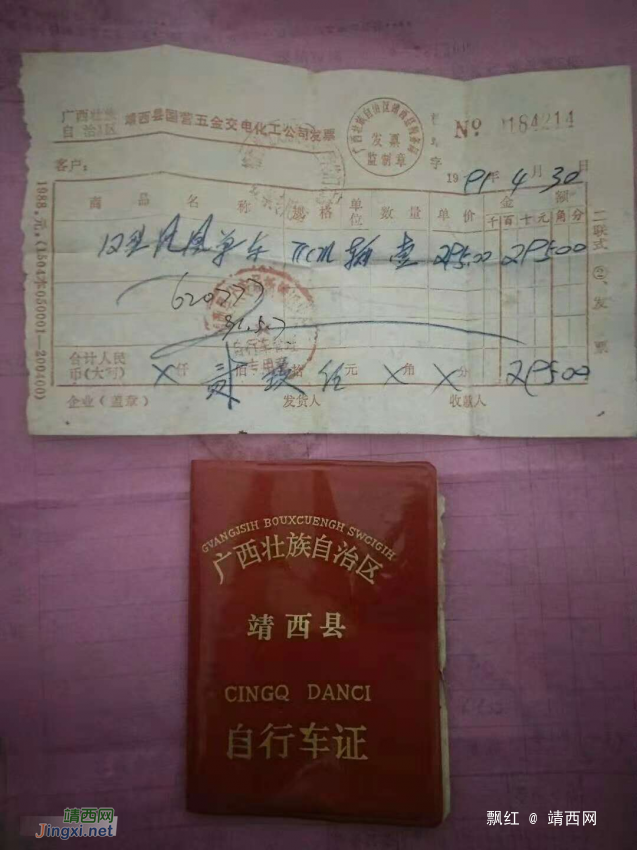 广西壮族
自治区
靖西县国营五金交电化工公司发票
发票
监制章
字
№ 0184214
客户：
1991年4月30日
商品名称 规格 单位 数量 单价 金额
千百十元角分
凤凰单车 辆 壹 295.00 295.00
620777
自行车
专用章
合计人民
币(大写) X仟 贰佰 拾 伍元 X角 X分 295.00
企业(盖章) 发货人 收款人
二联式 ②、发票
GVANGJSIH BOUXCUENGH SWCIGIH
广西壮族自治区
靖西县
CINGQ DANCI
自行车证
靖西网
Jingxi.net
飘红 @ 靖西网